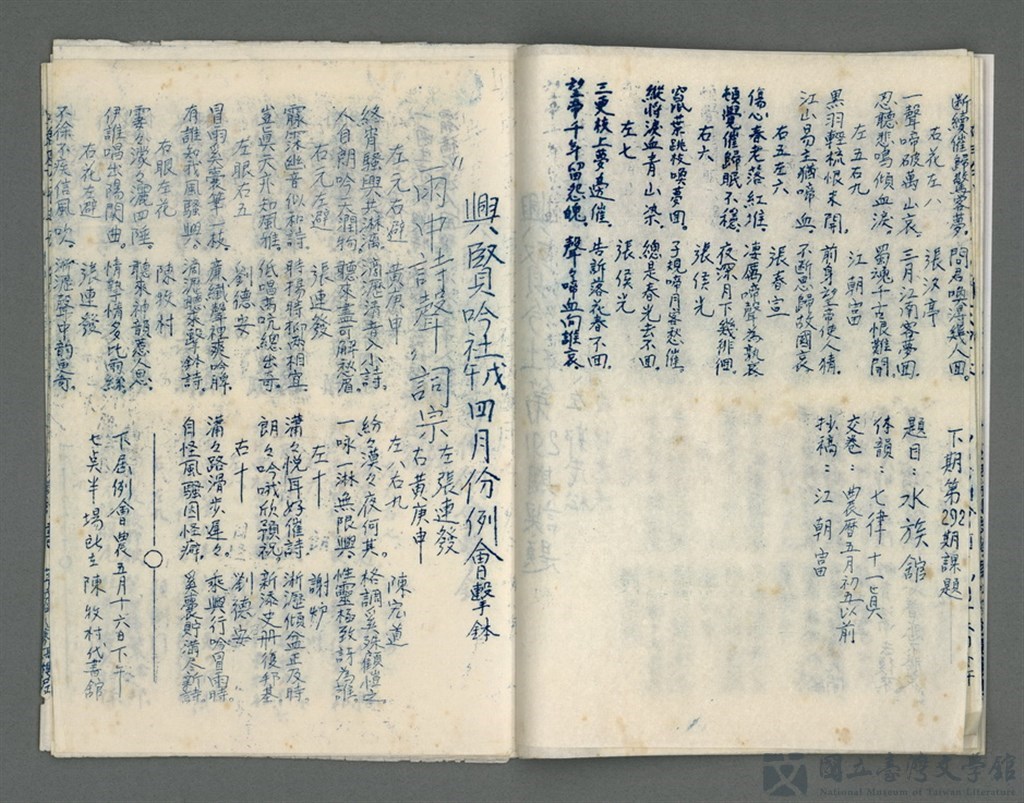 斷續催歸驚客夢。問君喚得幾人回。
右花左八 張汲亭
一聲啼破萬山哀。三月江南客夢回。
忍聽悲鳴傾血淚。蜀魂千古恨難開。
左五右九 江朝富
黑羽輕梳恨未開。前身望帝使人猜。
江山易主猶啼血。不斷思歸故國哀。
右五左六 張春宣
傷心春老落紅堆。淒厲啼聲為孰哀。
頓覺催歸眠不穩。夜深月下幾徘徊。
右六 張侯光
竄葉跳枝喚夢回。子規啼月案愁催。
縱將淚血青山染。總是春光去不回。
左七 張侯光
三更枝上夢邊催。告新落花春不回。
望帝千年留怨魄。聲々啼血向誰哀。
下期第292期課題
題目：水族館
体韻：七律十一真
交卷：農曆五月初五以前
抄稿：江朝富
興賢吟社戊午四月份例會擊鉢
"雨中詩聲 詞宗 左張連發 右黃庚申
左元右避 黃庚申
終宵騷興共淋漓。滴瀝清音入小詩。
人自朗吟天潤物。聽來盡可解愁眉。
右元左避 張連發
霢霂幽音似和詩。時揚時抑兩相宜。
豈真天亦知風雅。低唱高吭總出奇。
左眼右五 劉德安
冒雨奚囊筆一枝。廣纖聲裡爽吟脾。
有誰知我風騷興。滴瀝聲敲擊鉢詩。
右眼左花 陳牧村
雲々濛々灑四陲。聽來神韻惹人思。
伊誰唱出陽関曲。情摯情多比雨絲。
右花左避 張連發
不徐不疾信風吹。淅瀝聲中韵更奇。
左八右九 陳宏道
紛々漠々夜何其。格調奚殊顧愷之。
一咏一淋無限興。性靈極致許為誰。
左十 謝妒
瀟々悅耳好催詩。淅瀝傾盆正及時。
朗々吟哦欣預祝。新添丈册後邦基。
右十 劉德安
瀟々路滑步遲々。乘興行吟冒雨時。
自怪風騷因怪癖。奚囊貯滿尽新詩。
下屆例會農五月十六日下午
七吳半場所在陳牧村代書舘
國立臺灣文學館
National Museum of Taiwan Literature